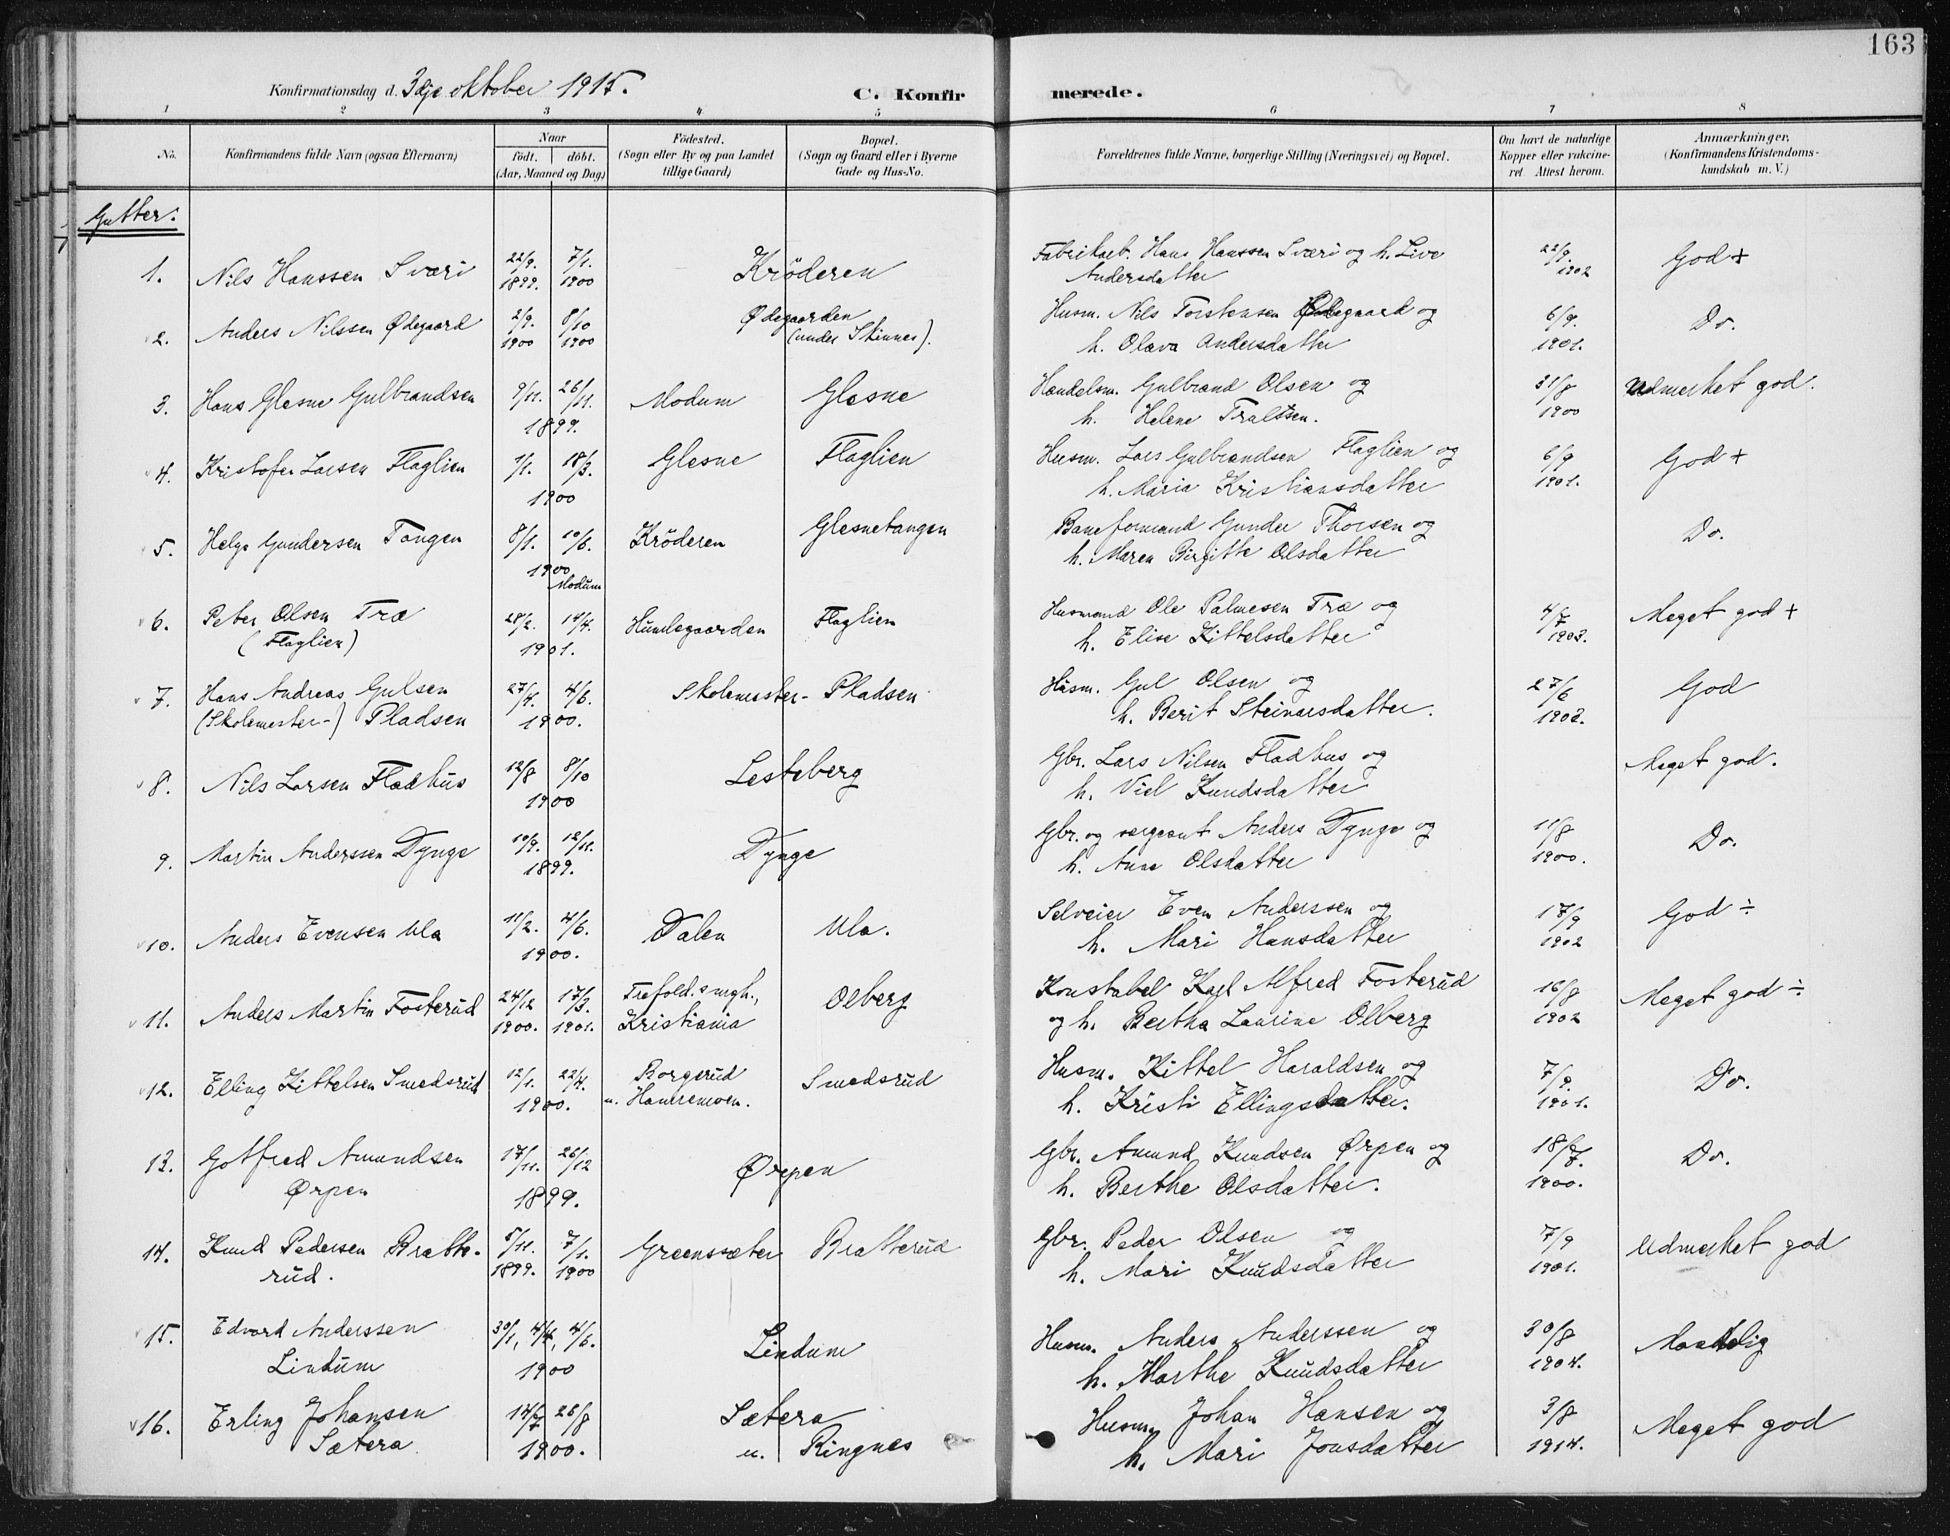 163
Konfirmationsdag d. 3dje oktober 1915.
C. Konfirmerede.
1 2 3 4 5 6 7 8
No.
Konfirmandens fulde Navn (ogsaa Efternavn)
Naar
født. døbt.
(Aar, Maaned og Dag)
Fødested.
(Sogn eller By og paa Landet
tillige Gaard)
Bopæl.
(Sogn og Gaard eller i Byerne
Gade og Hus-No.
Forældrenes fulde Navne, borgerlige Stilling (Næringsvei) og Bopæl.
Om havt de naturlige
Kopper eller vakcine-
ret. Attest herom.
Anmærkninger.
(Konfirmandens Kristendoms-
kundskab m. V.)
Gutter.
1. Nils Hanssen Sværi 22/9. 1899. 7/1. 1900 Krøderen Fabrikarb. Hans Hanssen Sværi og h. Live
Andersdatter 22/9. 1902 God +
2. Anders Nilssen Ødegaard 2/9. 1900 8/10 1900 Ødegaarden
(under Skinnes). Husm. Nils Torstensen Ødegaard og
h. Olava Andersdatter 6/9. 1901. Do.
3. Hans Glesne Gulbrandsen 9/11. 26/11. 1899. Modum Glesne Handelsm. Gulbrand Olsen og
h. Helene Tralssen. 31/8 1900 Udmerket god.
4. Kristofer Larsen Flaglien 1/1. 18/3. 1900 Glesne Flaglien Husm. Lars Gulbrandsen Flaglien og
h. Maria Kristiansdatter 6/9 1901. God +
5. Helge Gundersen Tangen 8/1. 10/6. 1900 Krøderen Glesnetangen Baneformand Gunder Thorsen og
h. Maren Birgitte Olsdatter Do.
6. Peter Olsen Træ
(Flaglien) 28/2. 14/4. 1901. Modum Humlegaarden Flaglien Husmand Ole Palmesen Træ og
h. Elise Kittelsdatter 4/7 1903. Meget god +
7. Hans Andreas Gulsen
(Skolemester-) Pladsen 27/4. 4/6. 1900. Skolemester-Pladsen Husm. Gul Olsen og
h. Berit Steinarsdatter. 27/6 1902. God
8. Nils Larsen Fladhus 12/8 8/10 1900 Lesteberg Gbr. Lars Nilsen Fladhus og
h. Viel Knudsdatter Meget god.
9. Martin Anderssen Dynge 10/9. 12/11. 1899. Dynge Gbr. og sergeant Anders Dynge og
h. Anne Olsdatter 11/8 1900. Do.
10. Anders Evensen Ula 11/2. 4/6. 1900. Dalen Ula. Selveier Even Anderssen og
h. Mari Hansdatter 17/9 1902 God ÷
11. Anders Martin Fosterud 24/12 1900. 17/3. 1901. Trefold.s mgh.,
Kristiania Olberg Konstabel Karl Alfred Fosterud
og h. Bertha Laurine Olberg 16/8 1902 Meget god ÷
12. Elling Kittelsen Smedsrud 12/1. 22/4. 1900. Borgerud
u. Hamremoen. Smedsrud Husm. Kittel Haraldsen og
h. Kristi Ellingsdatter. 7/9. 1901. Do.
13. Gotfred Amundsen
Ørpen 17/11. 26/12 1899. Ørpen Gbr. Amund Knudsen Ørpen og
h. Berthe Olsdatter. 18/7. 1900. Do.
14. Knud Pedersen Bratte-
rud. 5/11. 1899. 7/1. 1900 Greenssæter Bratterud Gbr. Peder Olsen og
h. Mari Knudsdatter 7/9 1901. Udmerket god
15. Edvard Anderssen
Lindum 30/1, 4/4, 4/6. 1900 Lindum Husm. Anders Anderssen og
h. Marthe Knudsdatter 30/8 1904. Maadelig
16. Erling Johansen
Sætera 14/7 26/8 1900. Sætera
u. Ringnes Husm. Johan Hansen og
h. Mari Jonsdatter 3/8 1914. Meget god